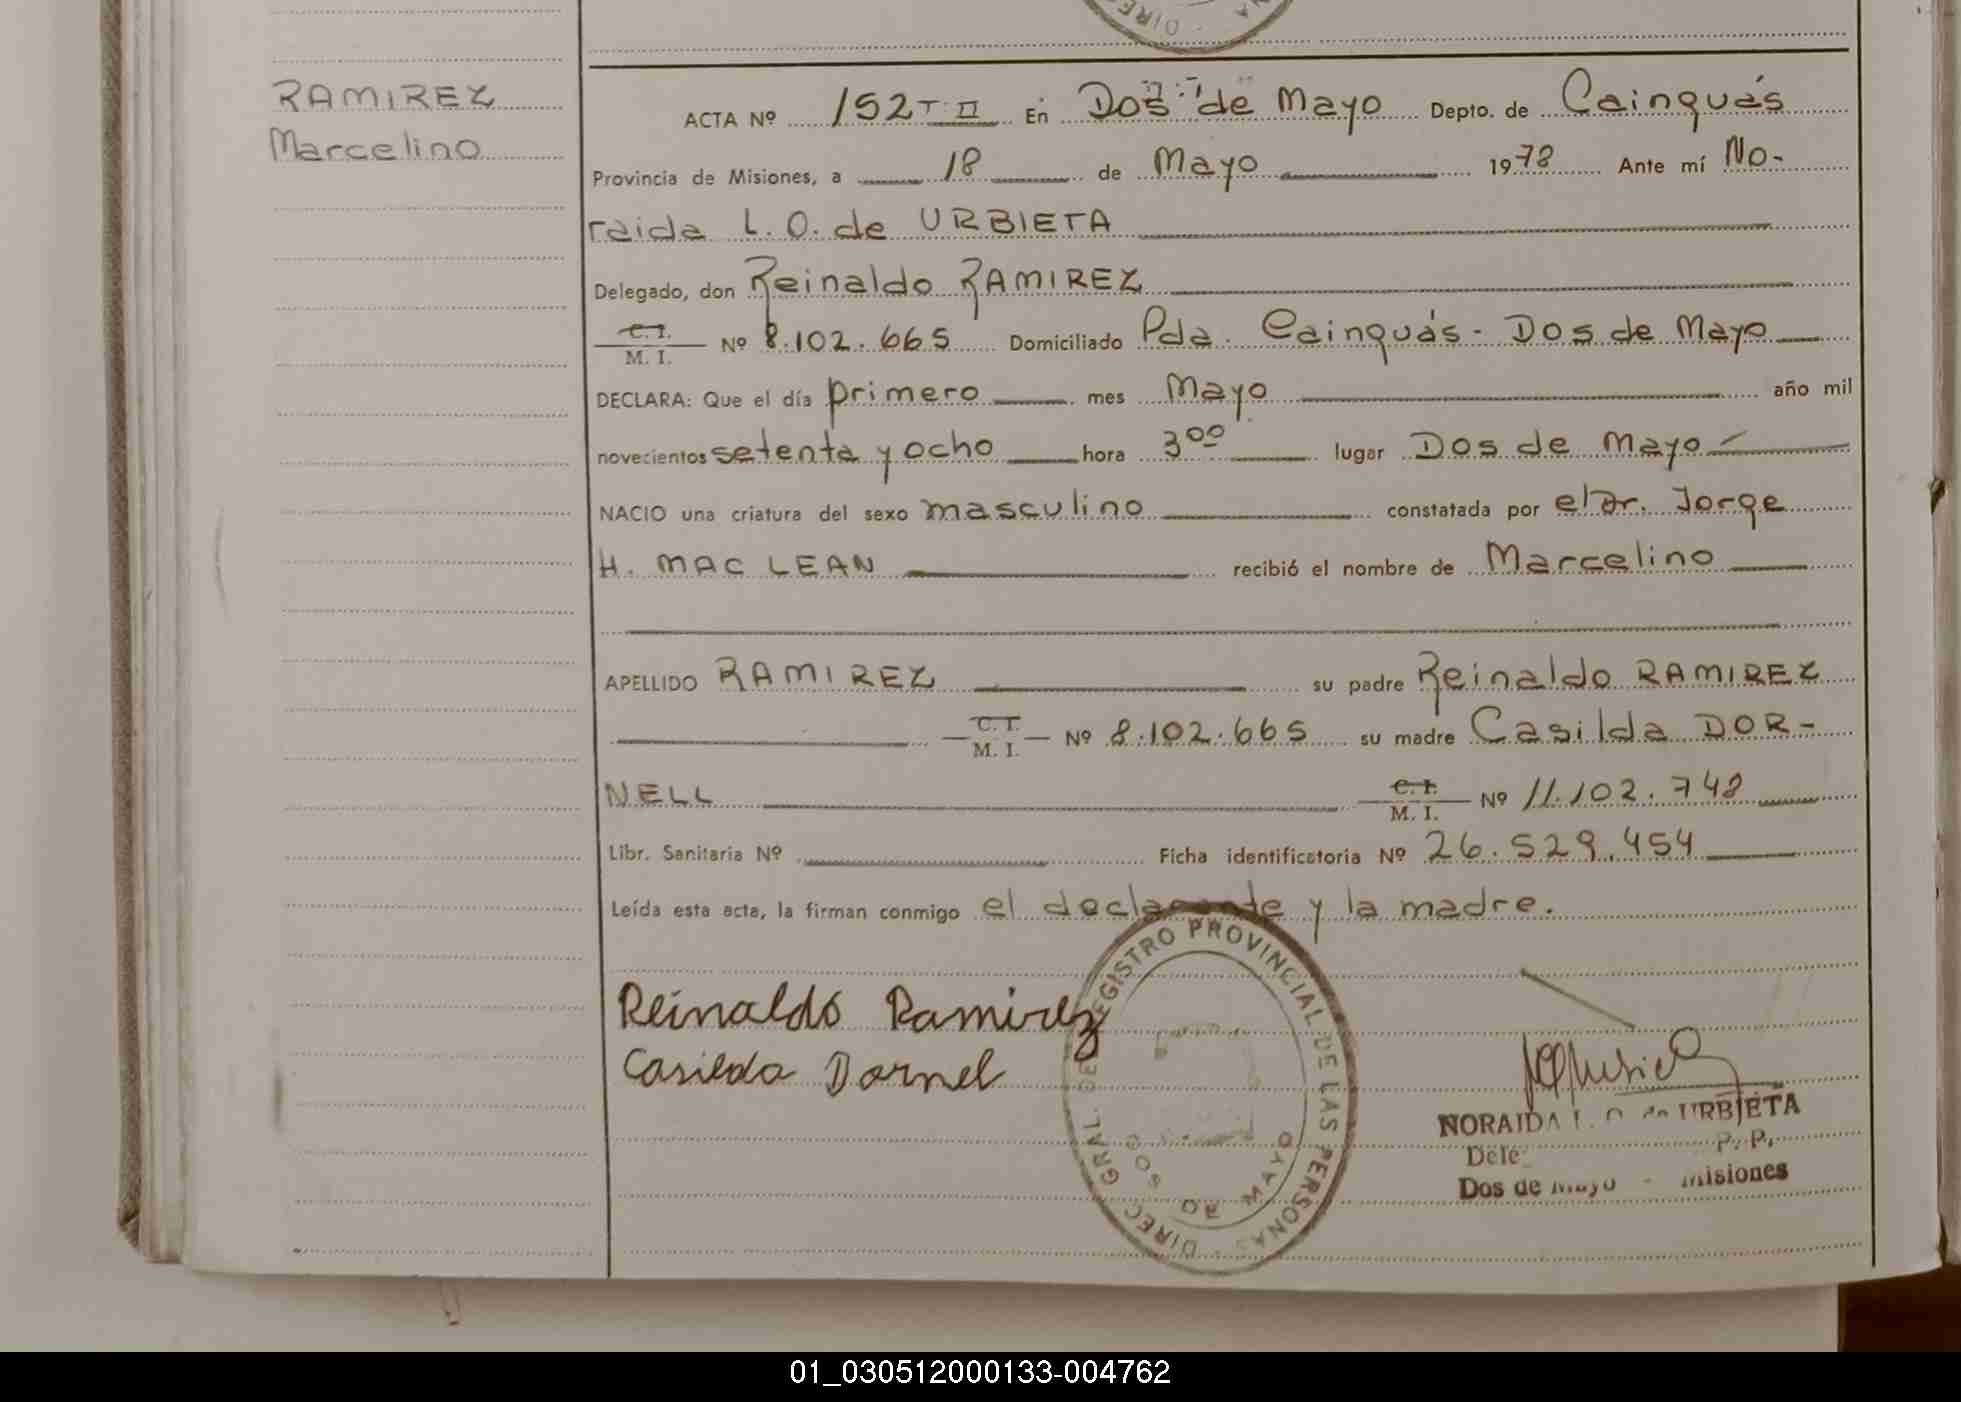 RAMIREZ
Marcelino
ACTA Nº 152 T. II En Dos de Mayo Depto. de Cainguás
Provincia de Misiones, a 18 de Mayo 1978 Ante mí No-
raida L. O. de URBIETA
Delegado, don Reinaldo RAMIREZ
C. I.
M. I. Nº 8.102.665 Domiciliado Pda. Cainguás - Dos de Mayo
DECLARA: Que el día primero mes Mayo año mil
novecientos setenta y ocho hora 3 00 lugar Dos de Mayo
NACIO una criatura del sexo masculino constatada por el Dr. Jorge
H. MAC LEAN recibió el nombre de Marcelino
APELLIDO RAMIREZ su padre Reinaldo RAMIREZ
C. I.
M. I. Nº 8.102.665 su madre Casilda DOR-
NELL C. I.
M. I. Nº 11.102.748
Libr. Sanitaria Nº Ficha identificatoria Nº 26.529.454
Leída esta acta, la firman conmigo el declarante y la madre.
Reinaldo Ramirez
Casilda Dornel
DIREC. GRAL. DE REGISTRO PROVINCIAL DE LAS PERSONAS
DOS DE MAYO
NORAIDA L. O. de URBIETA
P. P.
Dos de Mayo - Misiones
01_030512000133-004762